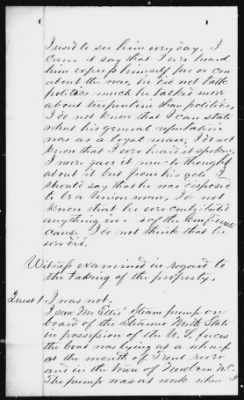 I used to see him every day, I
cannot say that I ever heard
him express himself pro or con
about the war, he did not talk
politics much he talked more
about than politics,
I do not know that I can state
what his general reputation
was as a loyal man, I do not
know that I ever heard it spoken,
I never gave it much thought
about it but from his acts I
should say that he was supposed
to be a Union man, I do not
know that he ever contributed
anything in of the Confederate
cause I do not think that he
ever did.
Witness examined in regard to
the taking of the property.
Quest 1 I was not.
I saw Mr Ellis' Steam pump on
board of the Steamer North State
in possession of the U.S. forces
the boat was lying at a wharf
at the mouth of Trent river
and in the town of New Bern N.C.
The pump was at work when I